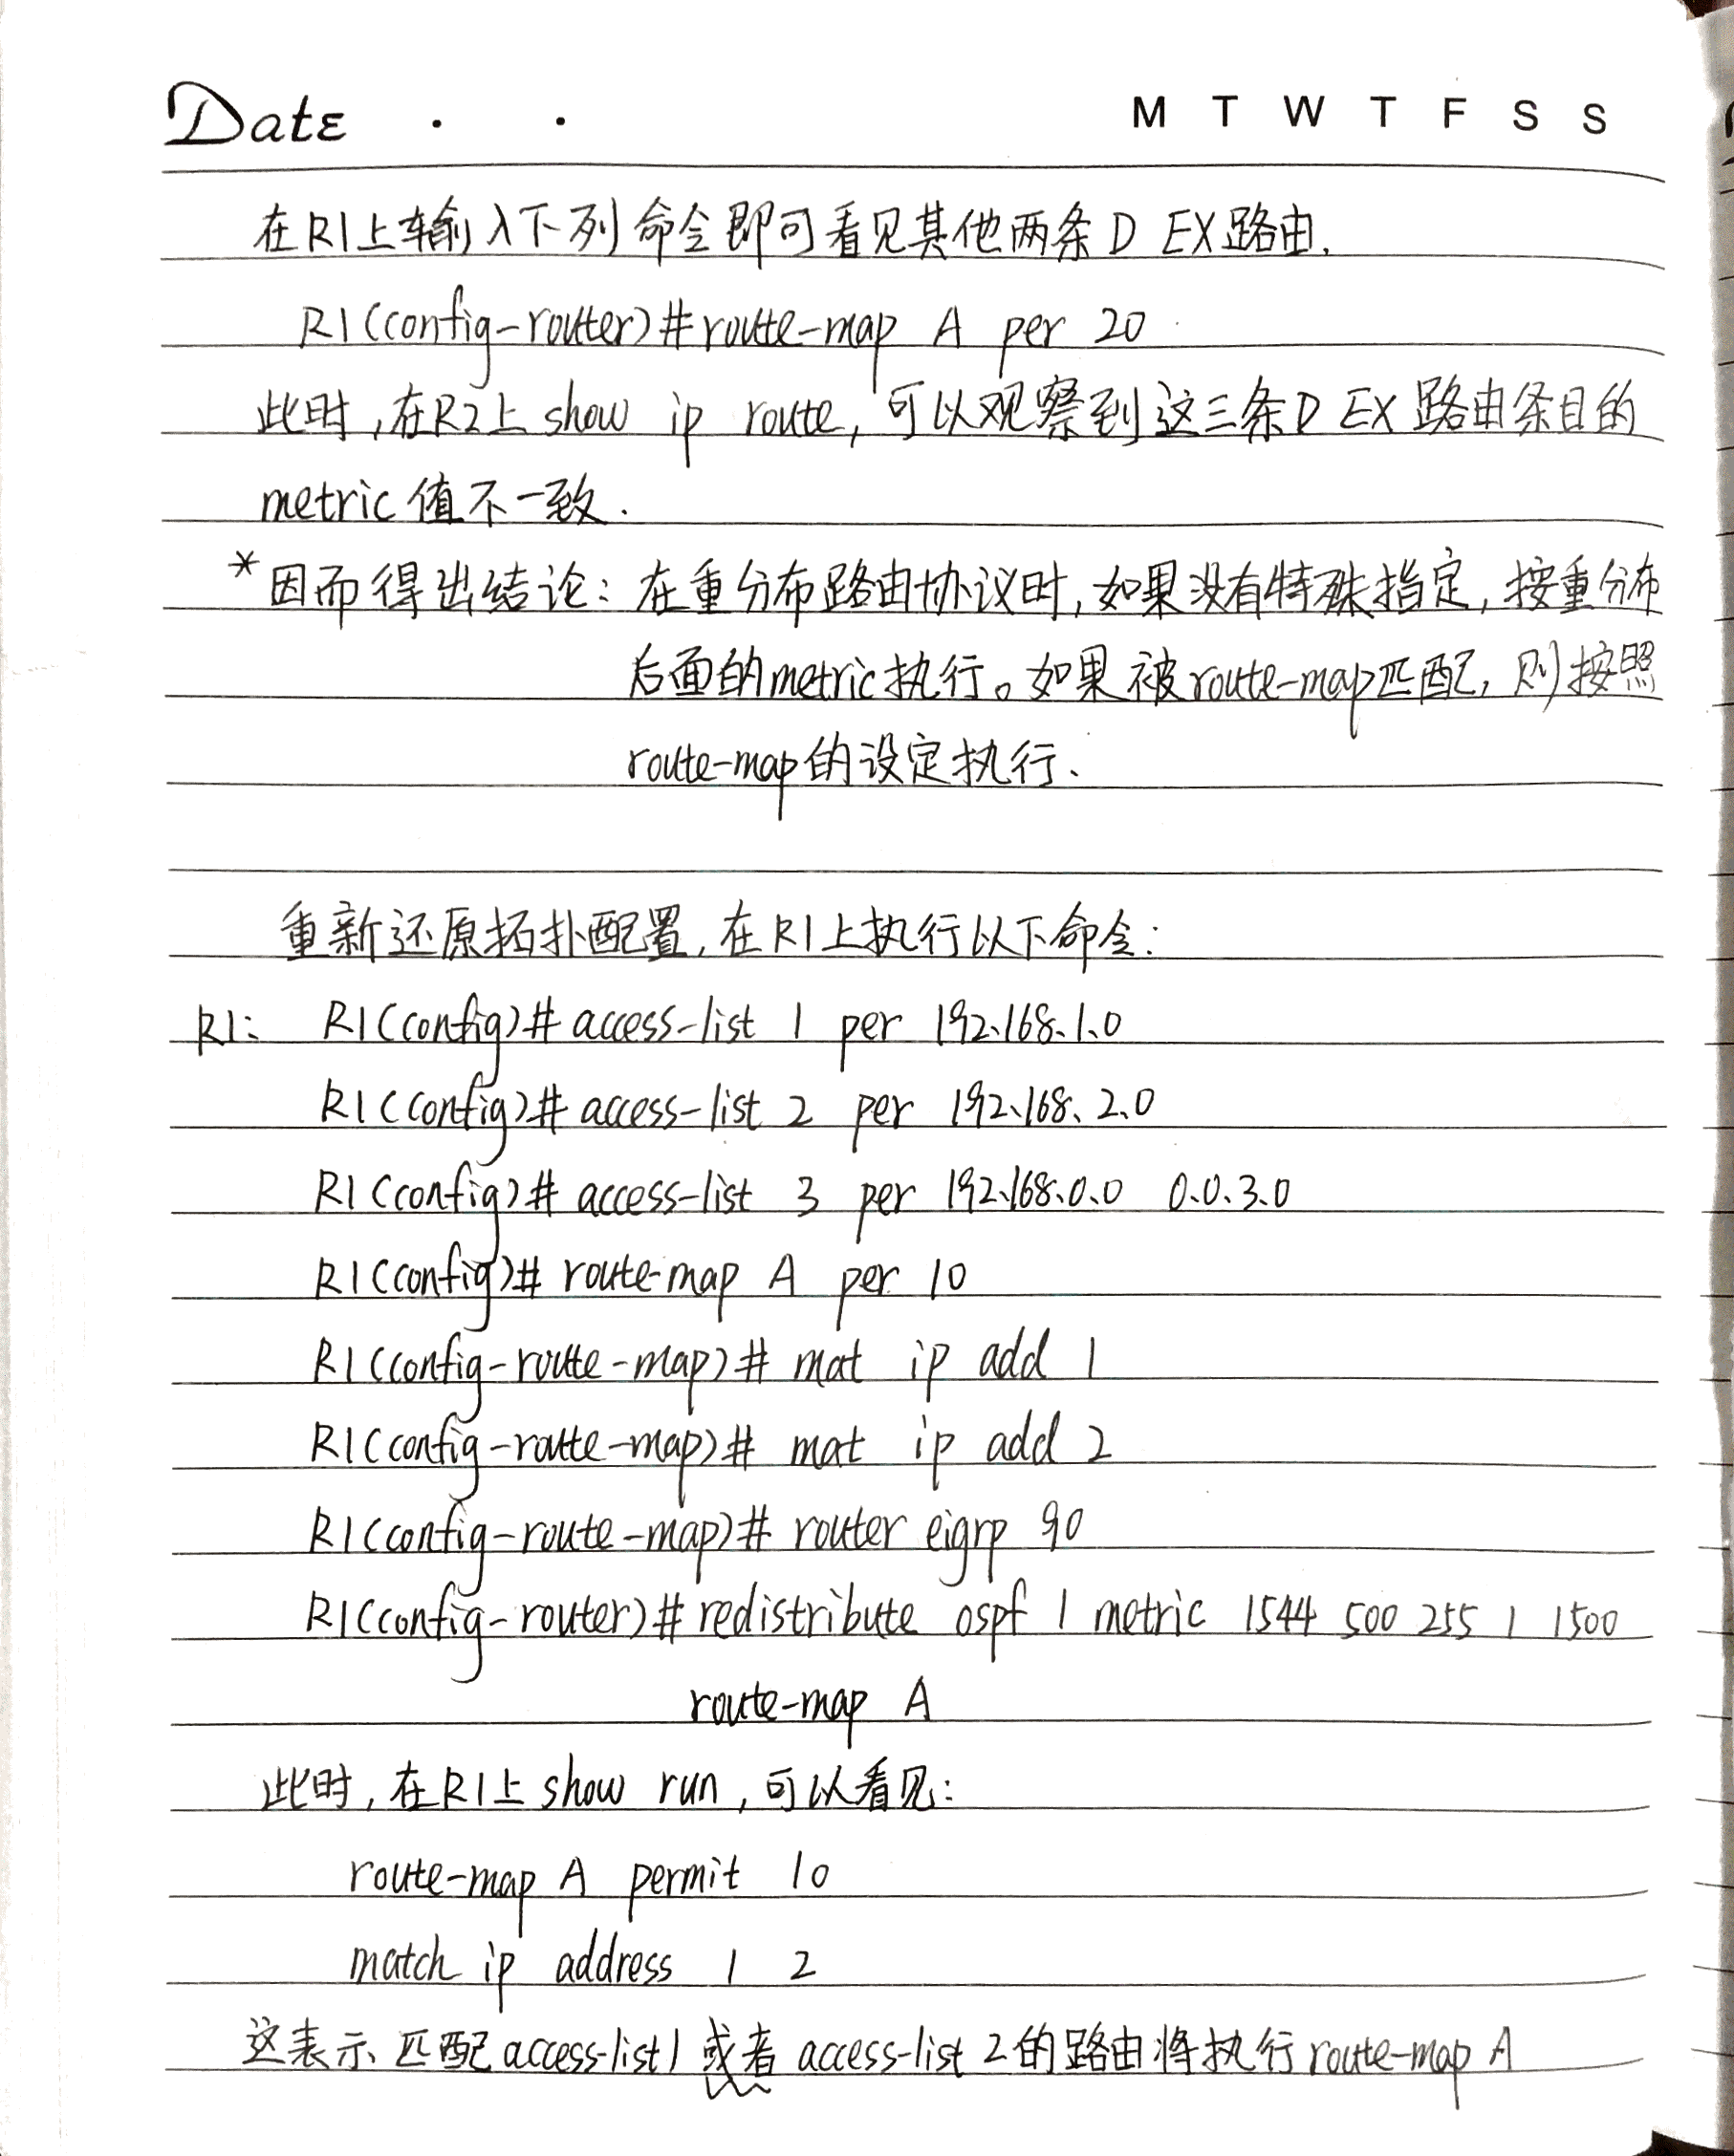 Date . . M T W T F S S
在R1上输入下列命令即可看见其他两条D EX路由.
R1(config-router)#route-map A per 20
此时,在R2上 show ip route,可以观察到这三条D EX 路由条目的
metric值不一致.
*因而得出结论:在重分布路由协议时,如果没有特殊指定,按重分布
后面的metric执行。如果被route-map匹配,则按照
route-map的设定执行.
重新还原拓扑配置,在R1上执行以下命令:
R1: R1(config)# access-list 1 per 192.168.1.0
R1(config)# access-list 2 per 192.168.2.0
R1(config)# access-list 3 per 192.168.0.0 0.0.3.0
R1(config)# route-map A per 10
R1(config-route-map)# mat ip add 1
R1(config-route-map)# mat ip add 2
R1(config-route-map)# router eigrp 90
R1(config-router)# redistribute ospf 1 metric 1544 500 255 1 1500
route-map A
此时,在R1上 show run,可以看见:
route-map A permit 10
match ip address 1 2
这表示匹配access-list1或者access-list 2的路由将执行route-map A